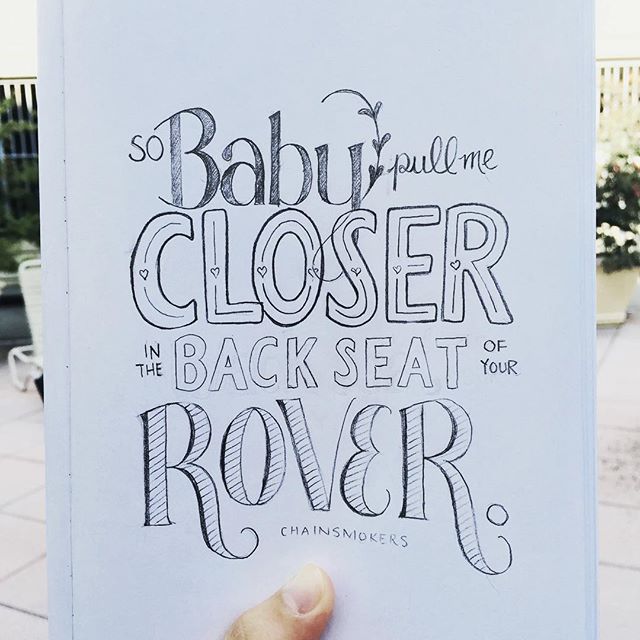 so Baby pull me
CLOSER
IN THE BACK SEAT OF YOUR
ROVER.
CHAINSMOKERS